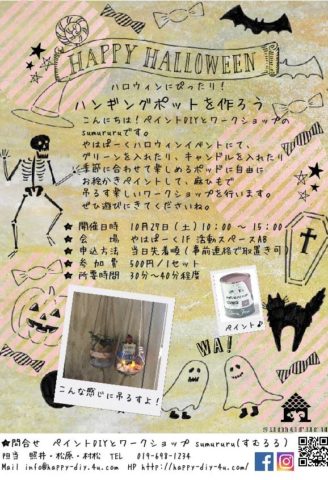 HAPPY HALLOWEEN
ハロウィンにぴったり!
ハンギングポットを作ろう
こんにちは!ペイントDIYとワークショップの
sumururuです。
やはぱーくハロウィンイベントにて、
グリーンを入れたり、キャンドルを入れたり
季節に合わせて楽しめるポットに自由に
お絵かきペイントして、麻ひもで
吊るす楽しいワークショップを行います。
ぜひ遊びにきてくださいね。
★ 開催日時 10月29日(土)10:00 ~ 15:00
★ 会 場 やはぱーく1F 活動スペースAB
★ 申込方法 当日先着順(事前連絡で取置き可
★ 参 加 費 500円/1セット
★ 所要時間 30分~40分程度
ペイント♪
WA!
こんな感じに吊るすよ!
★問合せ ペイントDIYとワークショップ sumururu(すむるる)
担当 照井・松原・村松 TEL 019-698-1234
Mail info@happy-diy-4u.com HP http://happy-diy-4u.com/